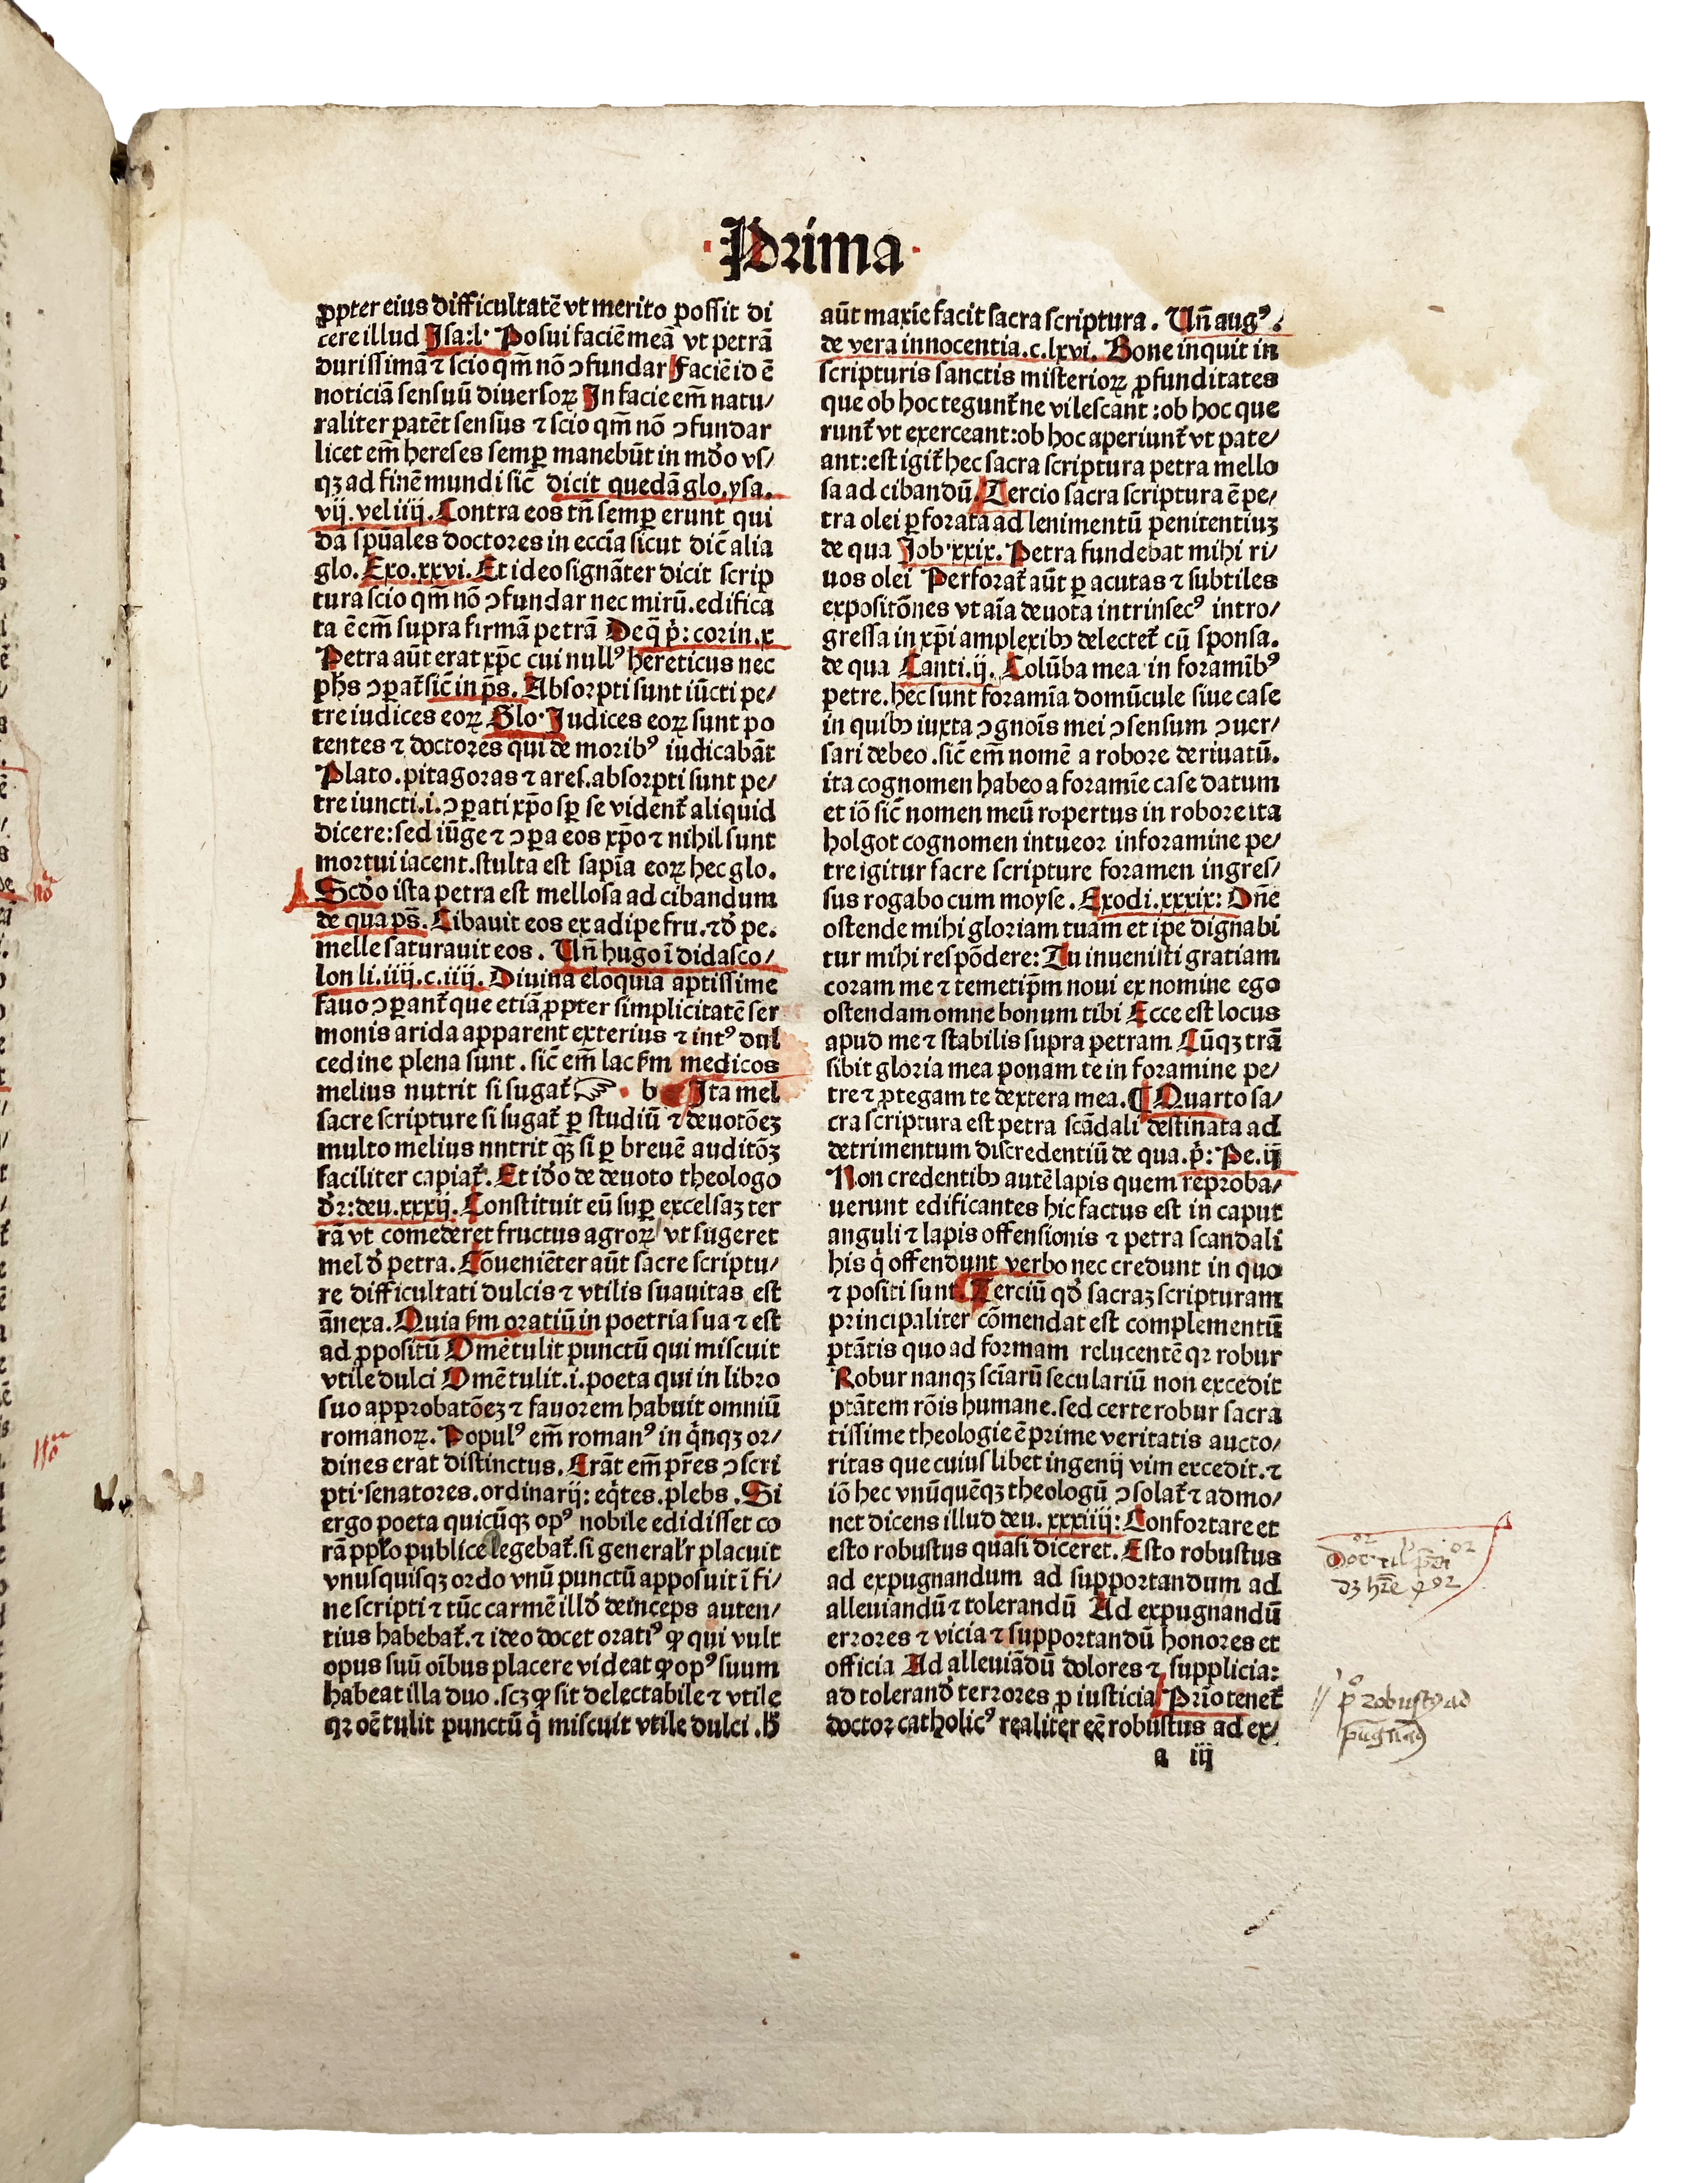 Prima
ꝓpter eius difficultatē vt merito possit di
cere illud Isa:l. Posui faciē meā vt petrā
durissimā ⁊ scio qm̄ nō ↄfundar Faciē id ē
noticiā sensuū diuersoꝝ In facie em̄ natu/
raliter patēt sensus ⁊ scio qm̄ nō ↄfundar
licet em̄ hereses semꝑ manebūt in mūdo vs/
qꝫ ad finē mundi sic̄ dicit quedā glo. ysa.
vij. vel iiij. Contra eos tn̄ semꝑ erunt qui
dā spūales doctores in eccīa sicut dic̄ alia
glo. Exo.xxvi. Et ideo signāter dicit scrip
tura scio qm̄ nō ↄfundar nec mirū. edifica
ta ē em̄ supra firmā petrā De q̄ p̄: corin.x
Petra aūt erat xp̄c cui nullꝰ hereticus nec
ph̄s ↄpat̄ sic̄ in p̄s. Absorpti sunt iūcti pe/
tre iudices eoꝝ Glo. Judices eoꝝ sunt po
tentes ⁊ doctores qui de moribꝰ iudicabāt
Plato. pitagoras ⁊ ares. absorpti sunt pe/
tre iuncti .i. ↄꝑati xp̄o sꝑ se vident̄ aliquid
dicere: sed iūge ⁊ ↄꝑa eos xp̄o ⁊ nihil sunt
mortui iacent. stulta est sapīa eoꝝ hec glo.
Scd̄o ista petra est mellosa ad cibandum
de qua ps̄. Cibauit eos ex adipe fru. ⁊ d̄ pe.
melle saturauit eos. Un̄ hugo ī didasco/
lon li.iiij.c.iiij. Diuina eloquia aptissime
fauo ↄꝑant̄ que etiā ꝓpter simplicitatē ser
monis arida apparent exterius ⁊ intꝰ dul
cedine plena sunt. sic̄ em̄ lac ẜm medicos
melius nutrit si sugat̄ ☞ . b Ita mel
sacre scripture si sugat̄ ꝑ studiū ⁊ deuotōeꝫ
multo melius nntrit qꝫ̄ si ꝑ breuē auditōꝫ
faciliter capiat̄. Et id̄o de deuoto theologo
dr̄: deu.xxxij. Constituit eū suꝑ excelsaꝫ ter
rā vt comederet fructus agroꝝ vt sugeret
mel d̄ petra. Cōueniēter aūt sacre scriptu/
re difficultati dulcis ⁊ vtilis suauitas est
ānexa. Quia ẜm oratiū in poetria sua ⁊ est
ad ꝓpositū Omē tulit punctū qui miscuit
vtile dulci Omē tulit .i. poeta qui in libro
suo approbatōeꝫ ⁊ fauorem habuit omniū
romanoꝝ. Populꝰ em̄ romanꝰ in q̄nqꝫ or/
dines erat distinctus. Erāt em̄ pr̄es ↄscri
pti. senatores. ordinarij: eq̄tes. plebs. Si
ergo poeta quicūqꝫ opꝰ nobile edidisset co
rā pplo publice legebat̄. si generalr̄ placuit
vnusquisqꝫ ordo vnū punctū apposuit ī fi/
ne scripti ⁊ tūc carmē illd̄ deinceps auten/
tius habebat̄. ⁊ ideo docet oratiꝰ ꝙ qui vult
opus suū oībus placere videat ꝙ opꝰ suum
habeat illa duo. scꝫ ꝙ sit delectabile ⁊ vtile
qꝛ oē tulit punctū q̄ miscuit vtile dulci. H̄
aūt maxīe facit sacra scriptura. Un̄ augꝰ.
de vera innocentia.c.lxvi. Bone inquit in
scripturis sanctis misterioꝝ ꝓfunditates
que ob hoc tegunt̄ ne vilescant̄: ob hoc que
runt̄ vt exerceant: ob hoc aperiunt̄ vt pate/
ant: est igit̄ hec sacra scriptura petra mello
sa ad cibandū. Tercio sacra scriptura ē pe/
tra olei ꝑforata ad lenimentū penitentiuꝫ
de qua Job.xxix. Petra fundebat mihi ri/
uos olei Perforat̄ aūt ꝑ acutas ⁊ subtiles
expositōnes vt aīa deuota intrinsecꝰ intro/
gressa in xp̄i amplexibꝫ delectet̄ cū sponsa.
de qua Canti.ij. Colūba mea in foramībꝰ
petre. hec sunt foramīa domūcule siue case
in quibꝫ iuxta ↄgnoīs mei ↄsensum ↄuer/
sari debeo. sic̄ em̄ nomē a robore deriuatū.
ita cognomen habeo a foramīe case datum
et iō sic̄ nomen meū ropertus in robore ita
holgot cognomen intueor in foramine pe/
tre igitur facre scripture foramen ingres/
sus rogabo cum moyse. Exodi.xxxix: Dn̄e
ostende mihi gloriam tuam et ipe dignabi
tur mihi respōdere: Tu inuenisti gratiam
coram me ⁊ temetip̄m noui ex nomine ego
ostendam omne bonum tibi Ecce est locus
apud me ⁊ stabilis supra petram Cūqꝫ trā
sibit gloria mea ponam te in foramine pe/
tre ⁊ ꝓtegam te dextera mea. ¶ Quarto sa/
cra scriptura est petra scādali destinata ad
detrimentum discredentiū de qua. p̄: Pe.ij
Non credentibꝫ autē lapis quem reproba/
uerunt edificantes hic factus est in caput
anguli ⁊ lapis offensionis ⁊ petra scandali
his q̄ offendunt verbo nec credunt in quo
⁊ positi sunt. Terciū qd̄ sacraꝫ scripturam
principaliter cōmendat est complementū
ptātis quo ad formam relucentē qꝛ robur
Robur nanqꝫ sciarū seculariū non excedit
ptātem rōis humane. sed certe robur sacra
tissime theologie ē prime veritatis aucto/
ritas que cuiuslibet ingenij vim excedit. ⁊
iō hec vnūquēqꝫ theologū ↄsolat̄ ⁊ admo/
net dicens illud deu. xxxiiij: Confortare et
esto robustus quasi diceret. Esto robustus
ad expugnandum ad supportandum ad
alleuiandū ⁊ tolerandū Ad expugnandū
errores ⁊ vicia ⁊ supportandū honores et
officia Ad alleuiādū dolores ⁊ supplicia:
ad tolerand̄ terrores ꝓ iusticia Prīo tenet̄
doctor catholicꝰ realiter eē robustus ad ex/
a iij
robustꝰ ad